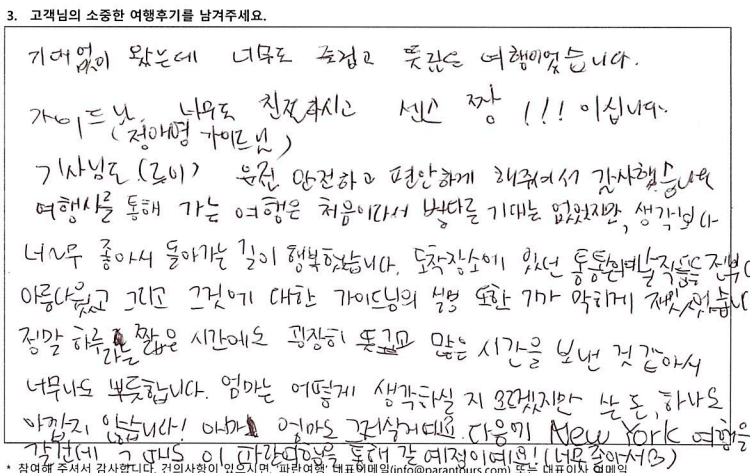 3. 고객님의 소중한 여행후기를 남겨주세요.
기대없이 왔는데 너무도 즐겁고 뜻깊은 여행이었습니다.
가이드님 너무도 친절하시고 센스 짱 !!! 이십니다.
( 가이드님)
기사님도 운전 안전하고 편안하게 해줘여서 감사했습니다
여행사를 통해 가는 여행은 처음이라서 별다른 기대는 없었지만, 생각보다
너~무 좋아서 돌아가는 길이 행복했습니다. 도착장소에 있던 전부
아름다웠고 그리고 그것에 대한 가이드님의 설명 또한 기가 막히게 재밌었습니다
정말 하루라는 짧은 시간에도 굉장히 뜻깊고 많은 시간을 보낸 것 같아서
너무나도 뿌듯합니다. 엄마는 어떻게 생각하실 지 모르겠지만 쓴 돈, 하나도
아깝지 않습니다! 아마 엄마도 그러실거예요. 다음에 New York 여행을
이 파란여행을 통해 갈 예정이에요! (너무좋아서3)
* 참여해 주셔서 감사합니다. 건의사항이 있으시면, "파란여행" 대표이메일(info@parantours.com) 또는 대표이사 이메일